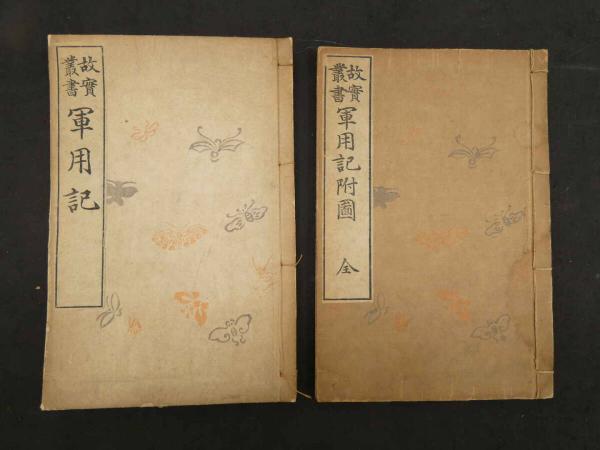 故實
叢書
軍用記
故實
叢書
軍用記附圖
全